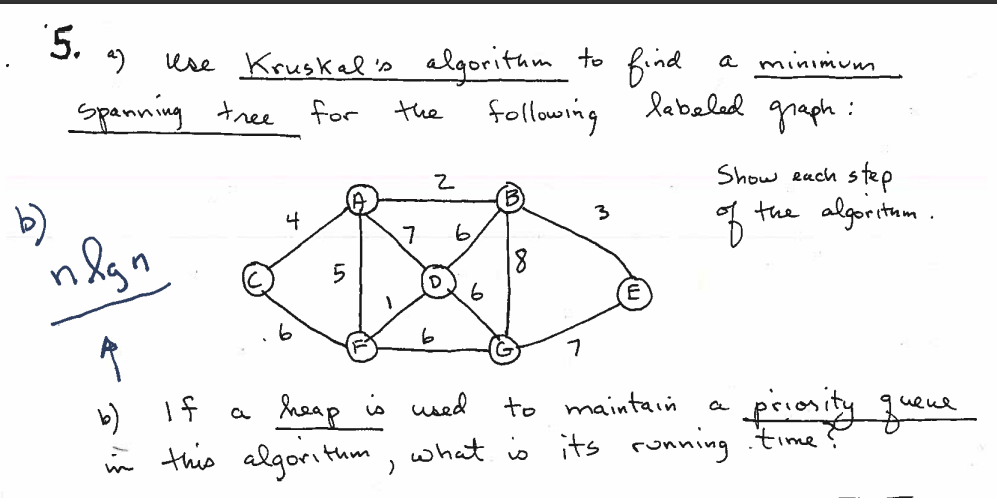 5. a) use Kruskal's algorithm to find a minimum
spanning tree for the following labeled graph:
Show each step
of the algorithm.
A 2 B
4 7 6 3
b)
n lg n
C 5 D 8 E
1 6
6 F 6 G 7
b) If a heap is used to maintain a priority queue
in this algorithm, what is its running time?